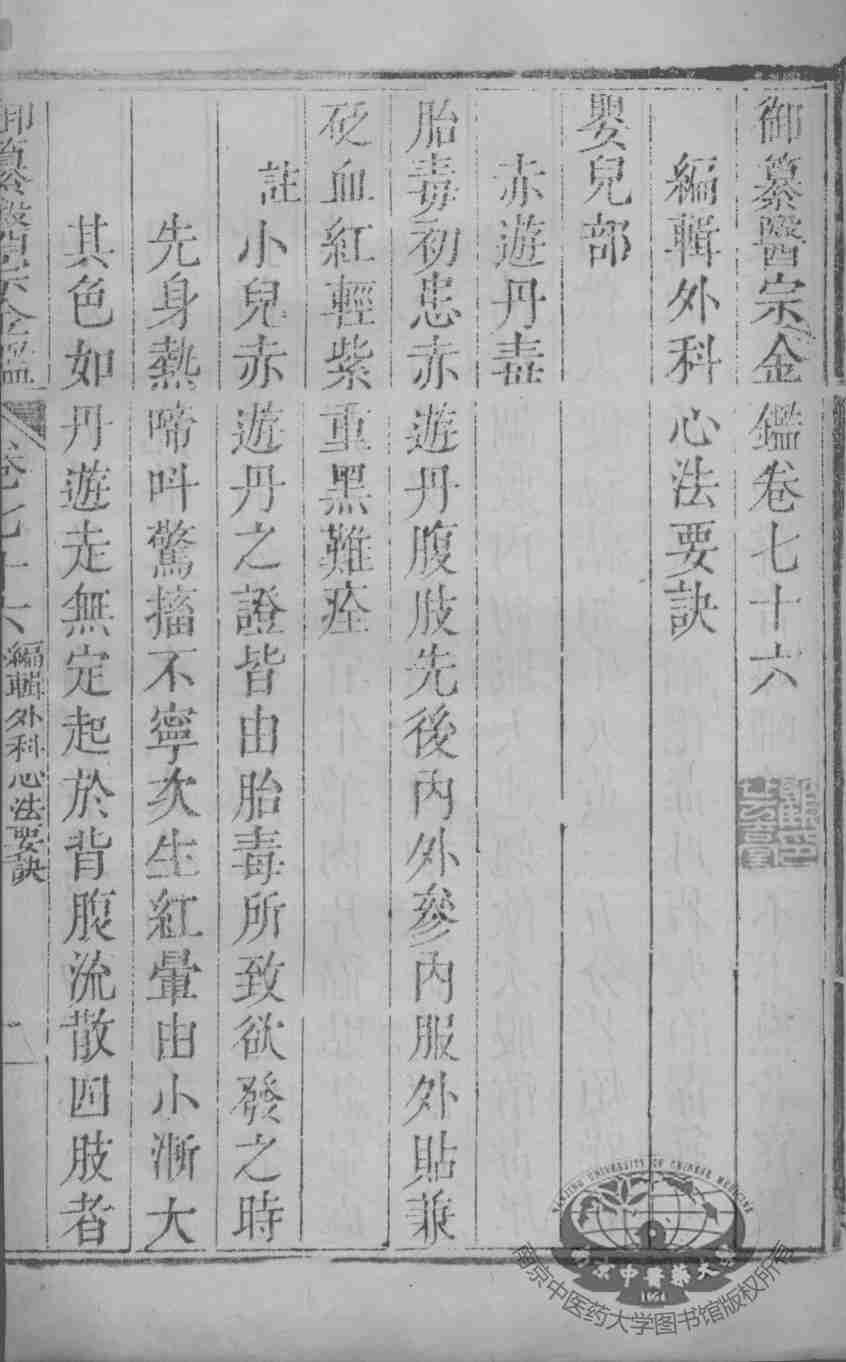 御纂醫宗金鑑卷七十六
編輯外科心法要訣
嬰兒部
赤遊丹毒
胎毒初患赤遊丹腹肢先後內外參內服外貼兼
砭血紅輕紫重黑難痊
註小兒赤遊丹之證皆由胎毒所致欲發之時
先身熱啼叫驚搐不寧次生紅暈由小漸大
其色如丹遊走無定起於背腹流散四肢者
御纂醫宗金鑑
卷七十六
編輯外科心法要訣
一
NANJING UNIVERSITY OF CHINESE MEDICINE
南京中醫藥大學
1954
南京中医药大学图书馆版权所有